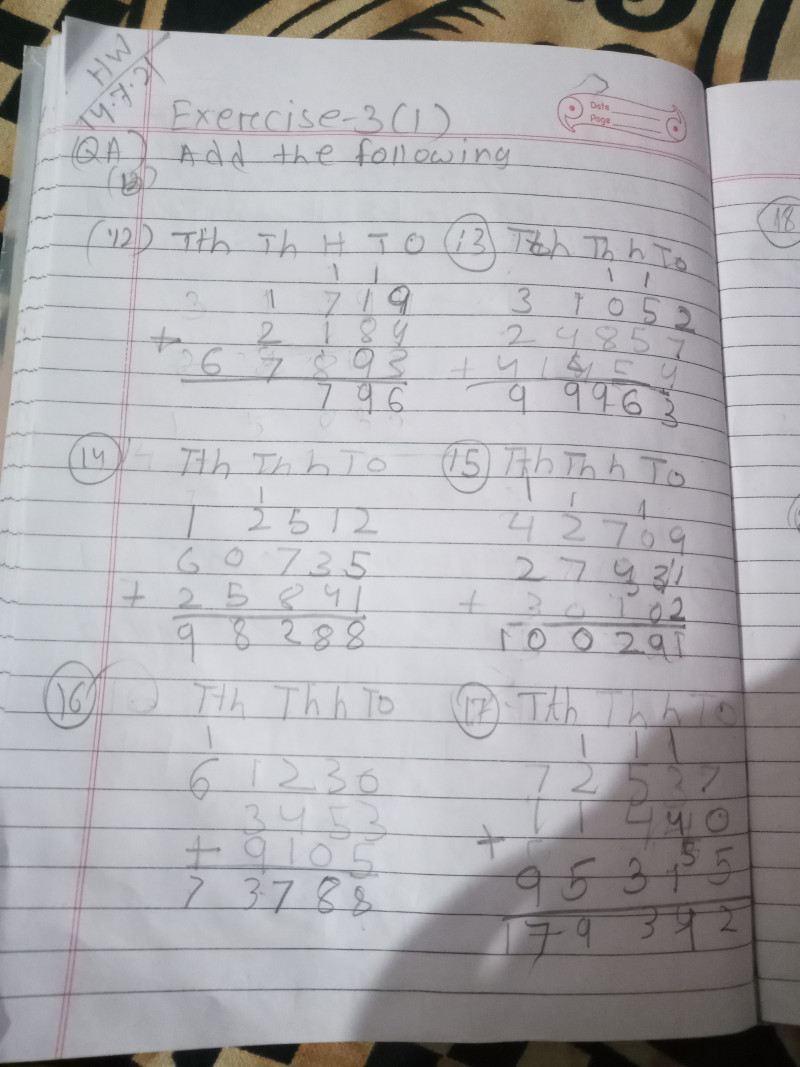 HW
14.7.21
Date
Page
Exercise-3(1)
(QA) Add the following
(12) Tth Th H T O
1 1
3 1 7 1 9
+ 2 1 8 4
6 7 8 9 3
7 9 6
(13) Tth Th h T o
1 1
3 1 0 5 2
2 4 8 5 7
+ 4 1 4 5 4
9 9 9 6 3
(14) Tth Th h T O
1
1 2 5 1 2
6 0 7 3 5
+ 2 5 8 4 1
9 8 2 8 8
(15) Tth Th h T o
1 1 1
4 2 7 0 9
2 7 9 3 1
+ 3 0 1 0 2
1 0 0 2 9 1
(16) Tth Th h T o
1
6 1 2 3 0
3 4 5 3
+ 9 1 0 5
7 3 7 8 8
(17) Tth Th h T O
1 1 1
7 2 5 3 7
1 1 4 4 0
+
9 5 3 1 5 5
1 7 9 3 9 2
18